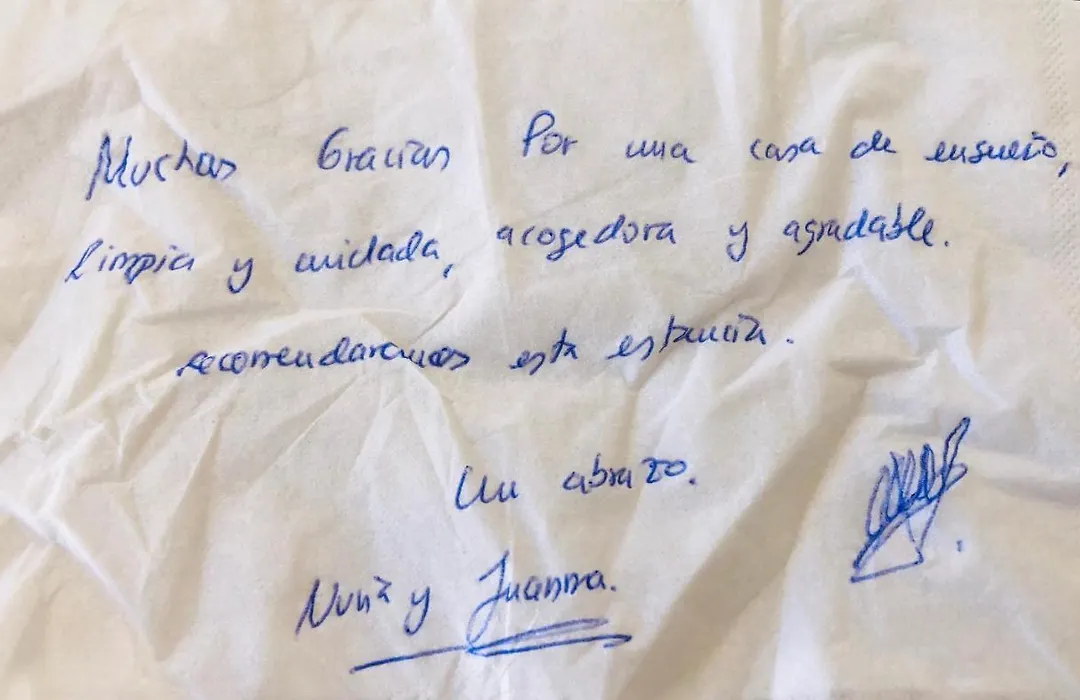 Muchas Gracias Por una casa de ensueño,
Limpia y cuidada, acogedora y agradable.
recomendaremos esta estancia.
Un abrazo.
y Juanma.